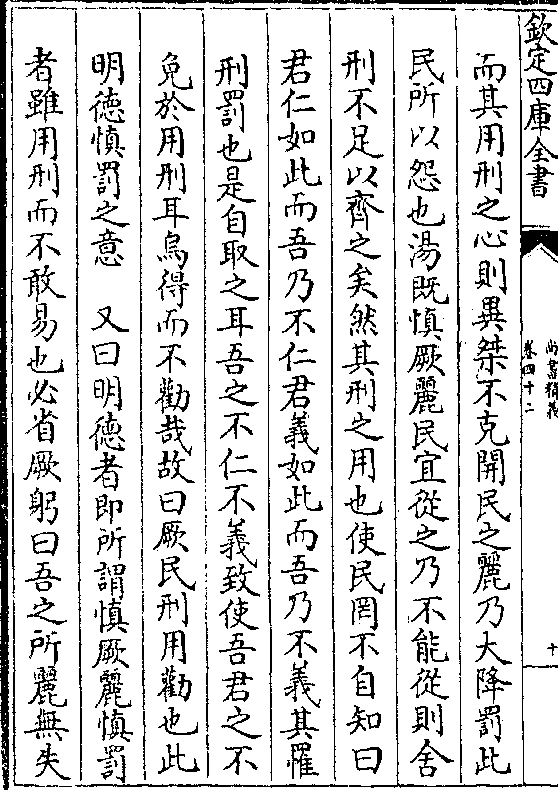 欽定四庫全書
尚書精義
卷四十二
十
而其用刑之心則異桀不克開民之麗乃大降罰此
民所以怨也湯既慎厥麗民宜從之乃不能從則舍
刑不足以齊之矣然其刑之用也使民罔不自知曰
君仁如此而吾乃不仁君義如此而吾乃不義其罹
刑罰也是自取之耳吾之不仁不義致使吾君之不
免於用刑耳烏得而不勸哉故曰厥民刑用勸也此
明德慎罰之意　又曰明德者即所謂慎厥麗慎罰
者雖用刑而不敢易也必省厥躬曰吾之所麗無失